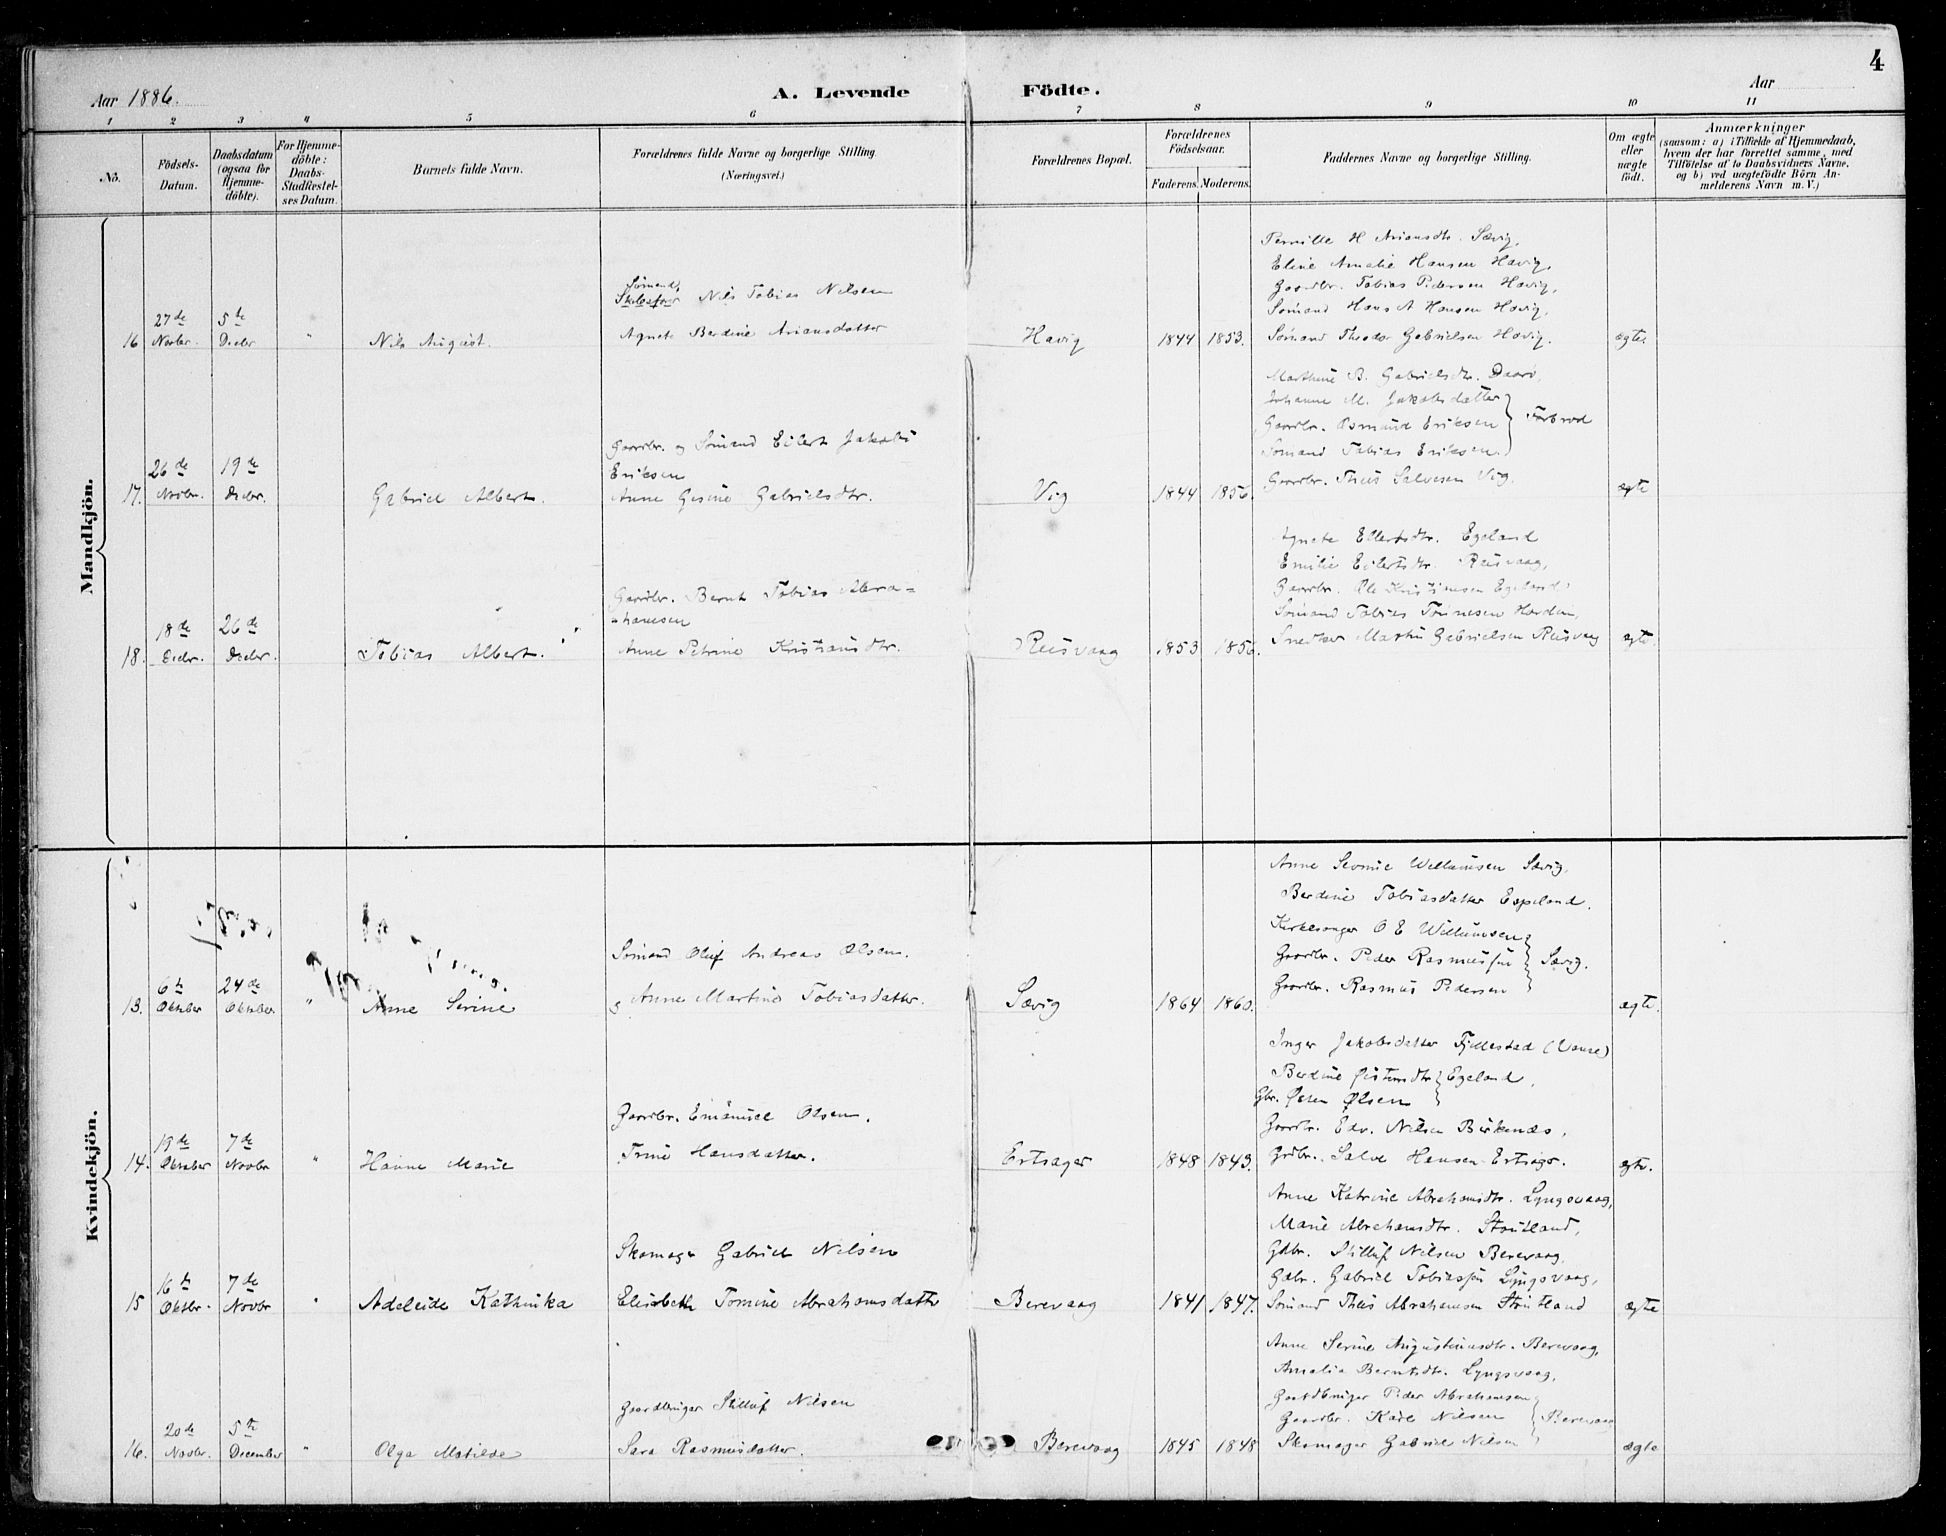 4
Aar 1886.
A. Levende Födte.
Aar
1 2 3 4 5 6 7 8 9 10 11
No.
Födsels-Datum.
Daabsdatum (ogsaa for Hjemme-döbte).
For Hjemme-döbte: Daabs-Stadfæstel-ses Datum.
Barnets fulde Navn.
Forældrenes fulde Navne og borgerlige Stilling. (Næringsvei.)
Forældrenes Bopæl.
Forældrenes Födselsaar.
Faderens. Moderens.
Faddernes Navne og borgerlige Stilling.
Om ægte eller uægte födt.
Anmærkninger
(saasom: a) i Tilfælde af Hjemmedaab, hvem der har forrettet samme, med Tilföielse af to Daabsvidners Navne, og b) ved uægtefödte Börn An-melderens Navn m. V.)
Mandkjön.
Pernille H Ariansdtr. Sævig,
Eline Amalie Hansen Havig,
Gaardbr. Tobias Pedersen Havig,
Sömand, Nils Tobias Nilsen
Sömand Hans A Hansen Havig,
16 27de Novbr. 5te Decbr " Nils August. Agnete Berdine Ariansdatter Havig 1844 1853. Sömand Theodor Gabrielsen Havig. ægte.
Marthine B. Gabrielsdtr.
Johanne M. Jakobsdatter
Gaardbr. Osmund Eriksen
Gaardbr. og Sömand Eilert Jakobs
Sömand Tobias Eriksen.
Eriksen
17. 26de Novbr. 19de Decbr. Gabriel Albert. Anne Gesine Gabrielsdtr. Vig 1844 1856. Gaardbr. Theis Salvesen Vig. ægte
Agnete Ellertsdtr. Egeland
Emilie Eilertsdtr. Reisvaag,
Gaardbr. Bernt Tobias Abra=
Gaardbr. Ole Kristiansen Egeland
=hamsen
Sömand Tobias Tönnesen
18. 18de Decbr. 26de Decbr. Tobias Albert. Anne Petrine Kristiansdtr. Reisvaag 1853 1856. Snedker Martin Gabrielsen Reisvaag ægte.
Kvindekjön.
Anne Severine Willumsen Sævig,
Berdine Tobiasdatter Espeland.
Kirkesanger O E Willumsen
Sömand Oluf Andreas Olsen.
Gaardbr. Peder Rasmussen } Sævig.
Gaardbr. Rasmus Pedersen
13. 6te Oktober 24de Oktober " Anne Serine og Anne Martine Tobiasdatter. Sævig 1864 1860. ægte.
Inger Jakobsdatter Fjellestad (Vanse)
Berdine Östensdtr } Egeland,
Gbr. Östen Olsen
Gaardbr. Emanuel Olsen.
Gaardbr. Edv. Nilsen Birkenæs,
14. 19de Oktober 7de Novbr " Hanne Marie Trine Hansdatter. Ertsager 1848 1843. Grdbr. Salve Hansen Ertsager. ægte.
Anne Katrine Abrahamsdtr. Lyngsvaag,
Marie Abrahamsdtr. Stoutland,
Skomager Gabriel Nilsen
Gdbr. Stilluf Nilsen Berevaag,
Gdbr. Gabriel Tobiassen Lyngsvaag,
15 16de Oktbr. 7de Novbr " Adeleide Kathinka Elisabeth Tomine Abrahamsdatter Berevaag 1841 1847. Sömand Theis Abrahamsen Stoutland ægte
Anne Serine Augustinusdtr. Berevaag,
Amalia Berntsdtr. Lyngsvaag,
Gaardbruger Stilluf Nilsen
Gaardbruger Peder Abrahamsen
Gaardbr. Karl Nilsen } Berevaag
16. 20de Novbr. 5te December " Olga Matilde Sara Rasmusdatter. Berevaag 1845 1848 Skomager Gabriel Nilsen ægte